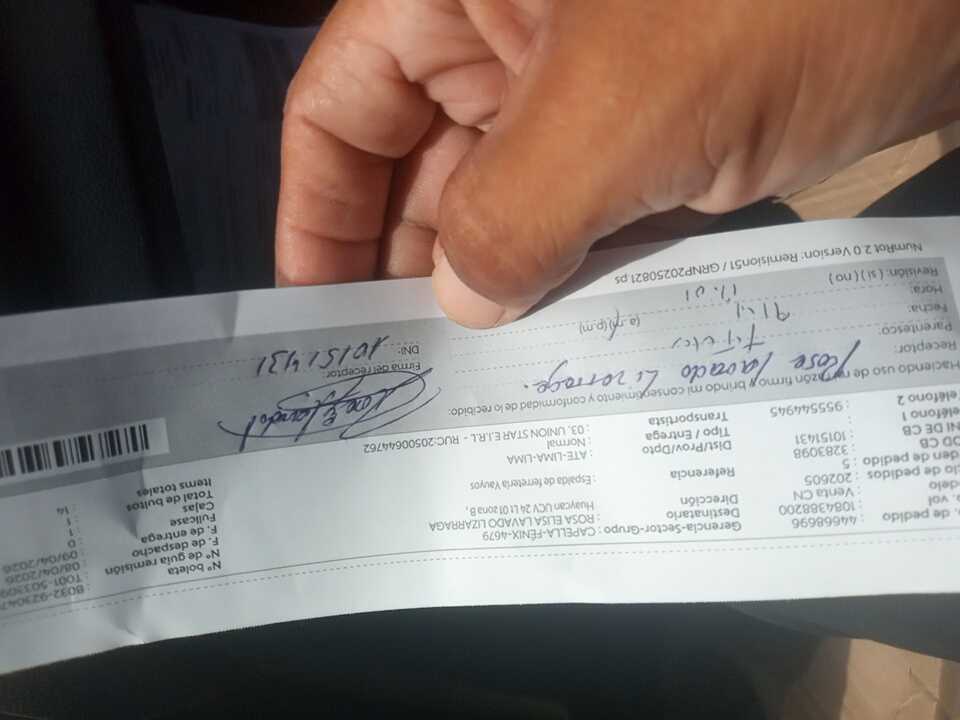 N° boleta : B032-923047
N° de guía remisión : T001-503309
F. de despacho : 08/04/2026
F. de entrega : 09/04/2026
Fullcase : 0
Cajas : 1
Total de bultos : 1
Items totales : 14
Gerencia-Sector-Grupo : CAPELLA-FÉNIX-4679
Destinatario : ROSA ELISA LAVADO LIZARRAGA
Dirección Huaycan UCV 24 Lt 01 zona B ,
Referencia Espalda de ferretería Yauyos
Dist/Prov/Dpto : ATE-LIMA-LIMA
Tipo / Entrega : Normal
Transportista : 03. UNION STAR E.I.R.L. - RUC:20500644762
o. de pedido : 44668696
o. vol : 1084388200
delo : Venta CN
cio de pedidos : 202605
den de pedido : 5
OD CB : 3283098
NI DE CB : 10151431
eléfono 1 : 955544945
eléfono 2 :
Haciendo uso de razón firmo y brindo mi consentimiento y conformidad de lo recibido:
Receptor: Rose lavado Lizarraga.
Parentesco: Titular
Fecha: 9/4/
Hora: 12:01 (a.m) (p.m)
Revisión: (si) (no)
Firma del receptor
DNI: 10151431
NumRot 2.0 Version: Remision51 / GRNP20250821.ps